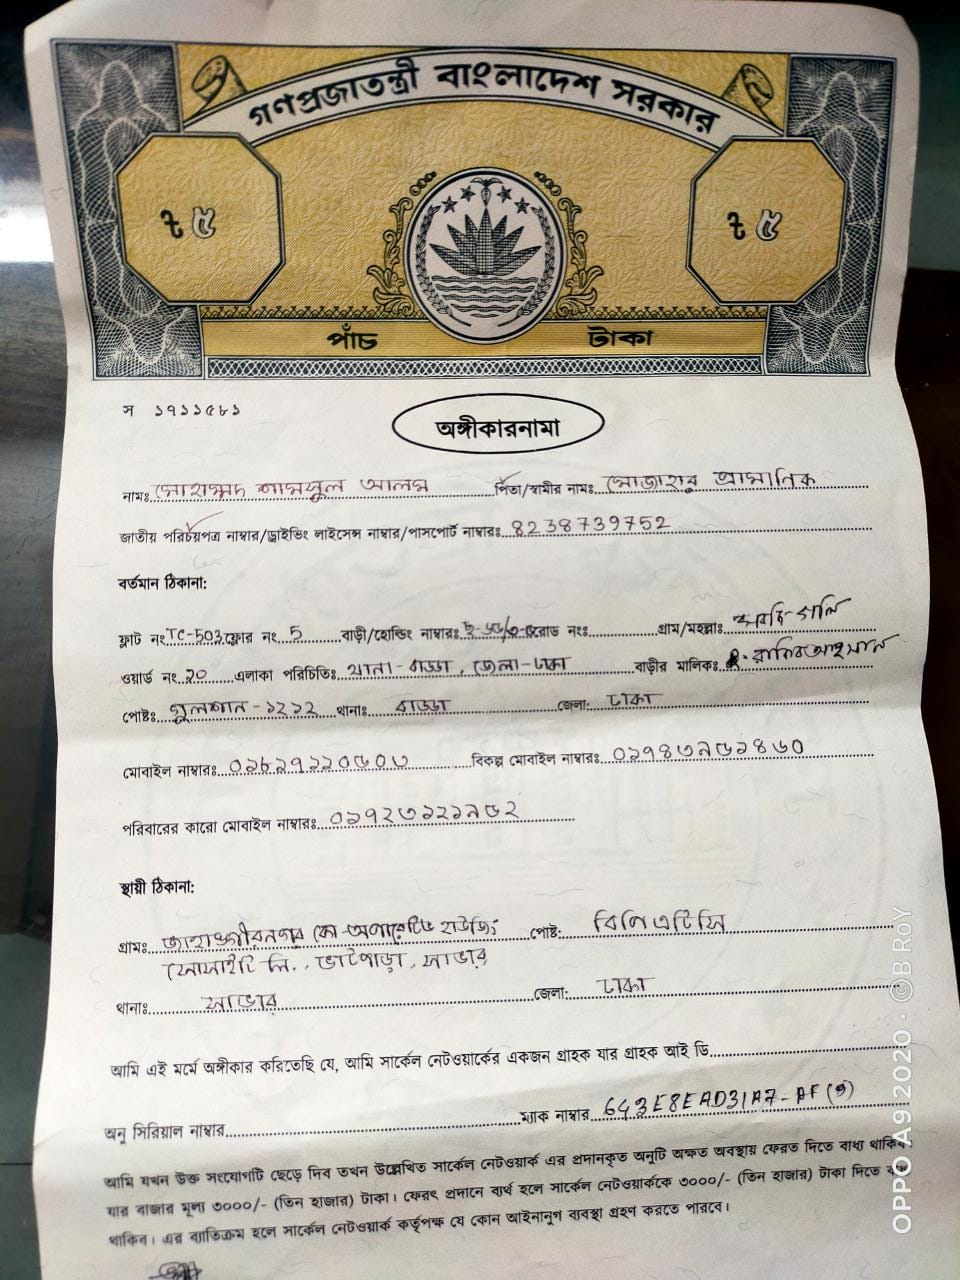 গণপ্রজাতন্ত্রী বাংলাদেশ সরকার
ট ৫ ট ৫
পাঁচ টাকা
স ১৭১১৫৮১
অঙ্গীকারনামা
নামঃ মোহাম্মদ শামসুল আলম পিতা/স্বামীর নামঃ মোজাহার প্রামানিক
জাতীয় পরিচয়পত্র নাম্বার/ড্রাইভিং লাইসেন্স নাম্বার/পাসপোর্ট নাম্বারঃ 8238739752
বর্তমান ঠিকানা:
ফ্লাট নং TC-503 ফ্লোর নং 5 বাড়ী/হোল্ডিং নাম্বারঃ রোড নংঃ গ্রাম/মহল্লাঃ
ওয়ার্ড নং ২০ এলাকা পরিচিতিঃ থানা-বাড্ডা, জেলা-ঢাকা বাড়ীর মালিকঃ
পোষ্টঃ গুলশান-১২১২ থানাঃ বাড্ডা জেলা: ঢাকা
মোবাইল নাম্বারঃ বিকল্প মোবাইল নাম্বারঃ
পরিবারের কারো মোবাইল নাম্বারঃ
স্থায়ী ঠিকানা:
গ্রামঃ জাহাঙ্গীরনগর কো-অপারেটিভ হাউজিং পোষ্ট: বিপিএটিসি
সোসাইটি লি., ভাটপাড়া, সাভার
থানাঃ সাভার জেলা: ঢাকা
আমি এই মর্মে অঙ্গীকার করিতেছি যে, আমি সার্কেল নেটওয়ার্কের একজন গ্রাহক যার গ্রাহক আই ডি
অনু সিরিয়াল নাম্বার ম্যাক নাম্বার
আমি যখন উক্ত সংযোগটি ছেড়ে দিব তখন উল্লেখিত সার্কেল নেটওয়ার্ক এর প্রদানকৃত অনুটি অক্ষত অবস্থায় ফেরত দিতে বাধ্য থাকিব
যার বাজার মূল্য ৩০০০/- (তিন হাজার) টাকা। ফেরৎ প্রদানে ব্যর্থ হলে সার্কেল নেটওয়ার্ককে ৩০০০/- (তিন হাজার) টাকা দিতে
থাকিব। এর ব্যতিক্রম হলে সার্কেল নেটওয়ার্ক কর্তৃপক্ষ যে কোন আইনানুগ ব্যবস্থা গ্রহণ করতে পারবে।
OPPO A9 2020 · ©B ROY